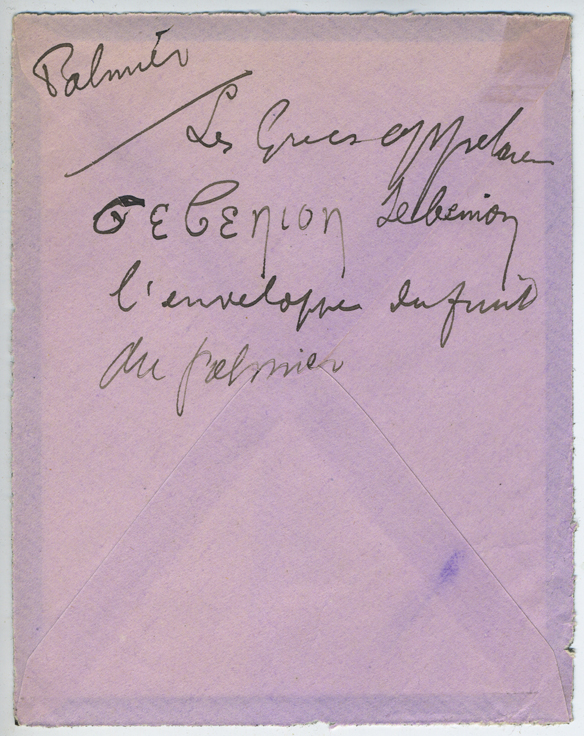 Palmier
Les Grecs appelaien
σεβενιον Sebenion
l'enveloppe du fruit
du palmier